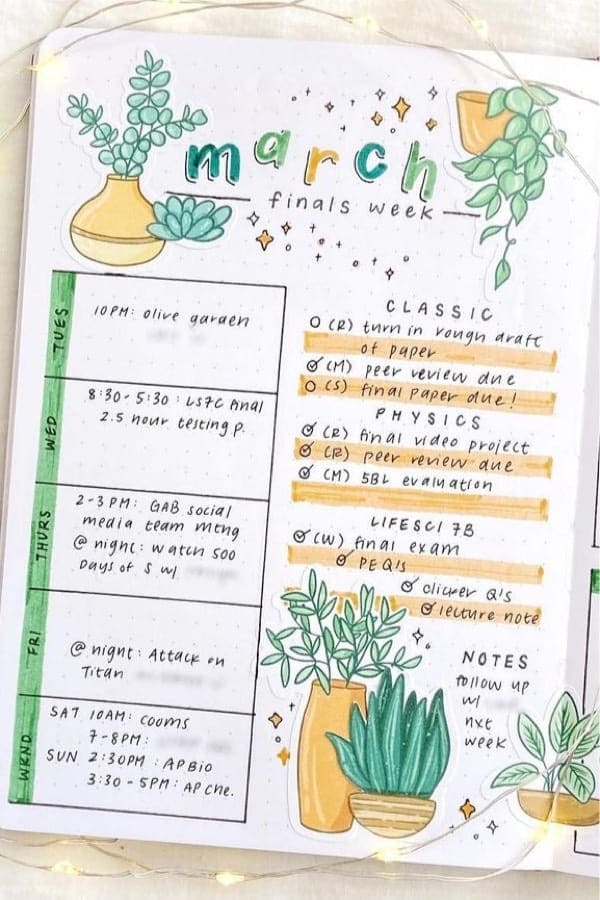 march
finals week
TUES
10PM: olive garden
WED
8:30-5:30: LS7C final
2.5 hour testing p.
THURS
2-3 PM: GAB social
media team mtng
@ night: watch 500
Days of S w/
FRI
@ night: Attack on
Titan
WKND
SAT 10AM: cooms
7-8PM:
SUN 2:30PM: AP Bio
3:30-5PM: AP Che.
CLASSIC
(R) turn in rough draft
of paper
(M) peer review due
(S) final paper due!
PHYSICS
(R) final video project
(R) peer review due
(M) SBL evaluation
LIFESCI 7B
(W) final exam
PEQ's
clicker Q's
lecture note
NOTES
follow up
w/
nxt
week